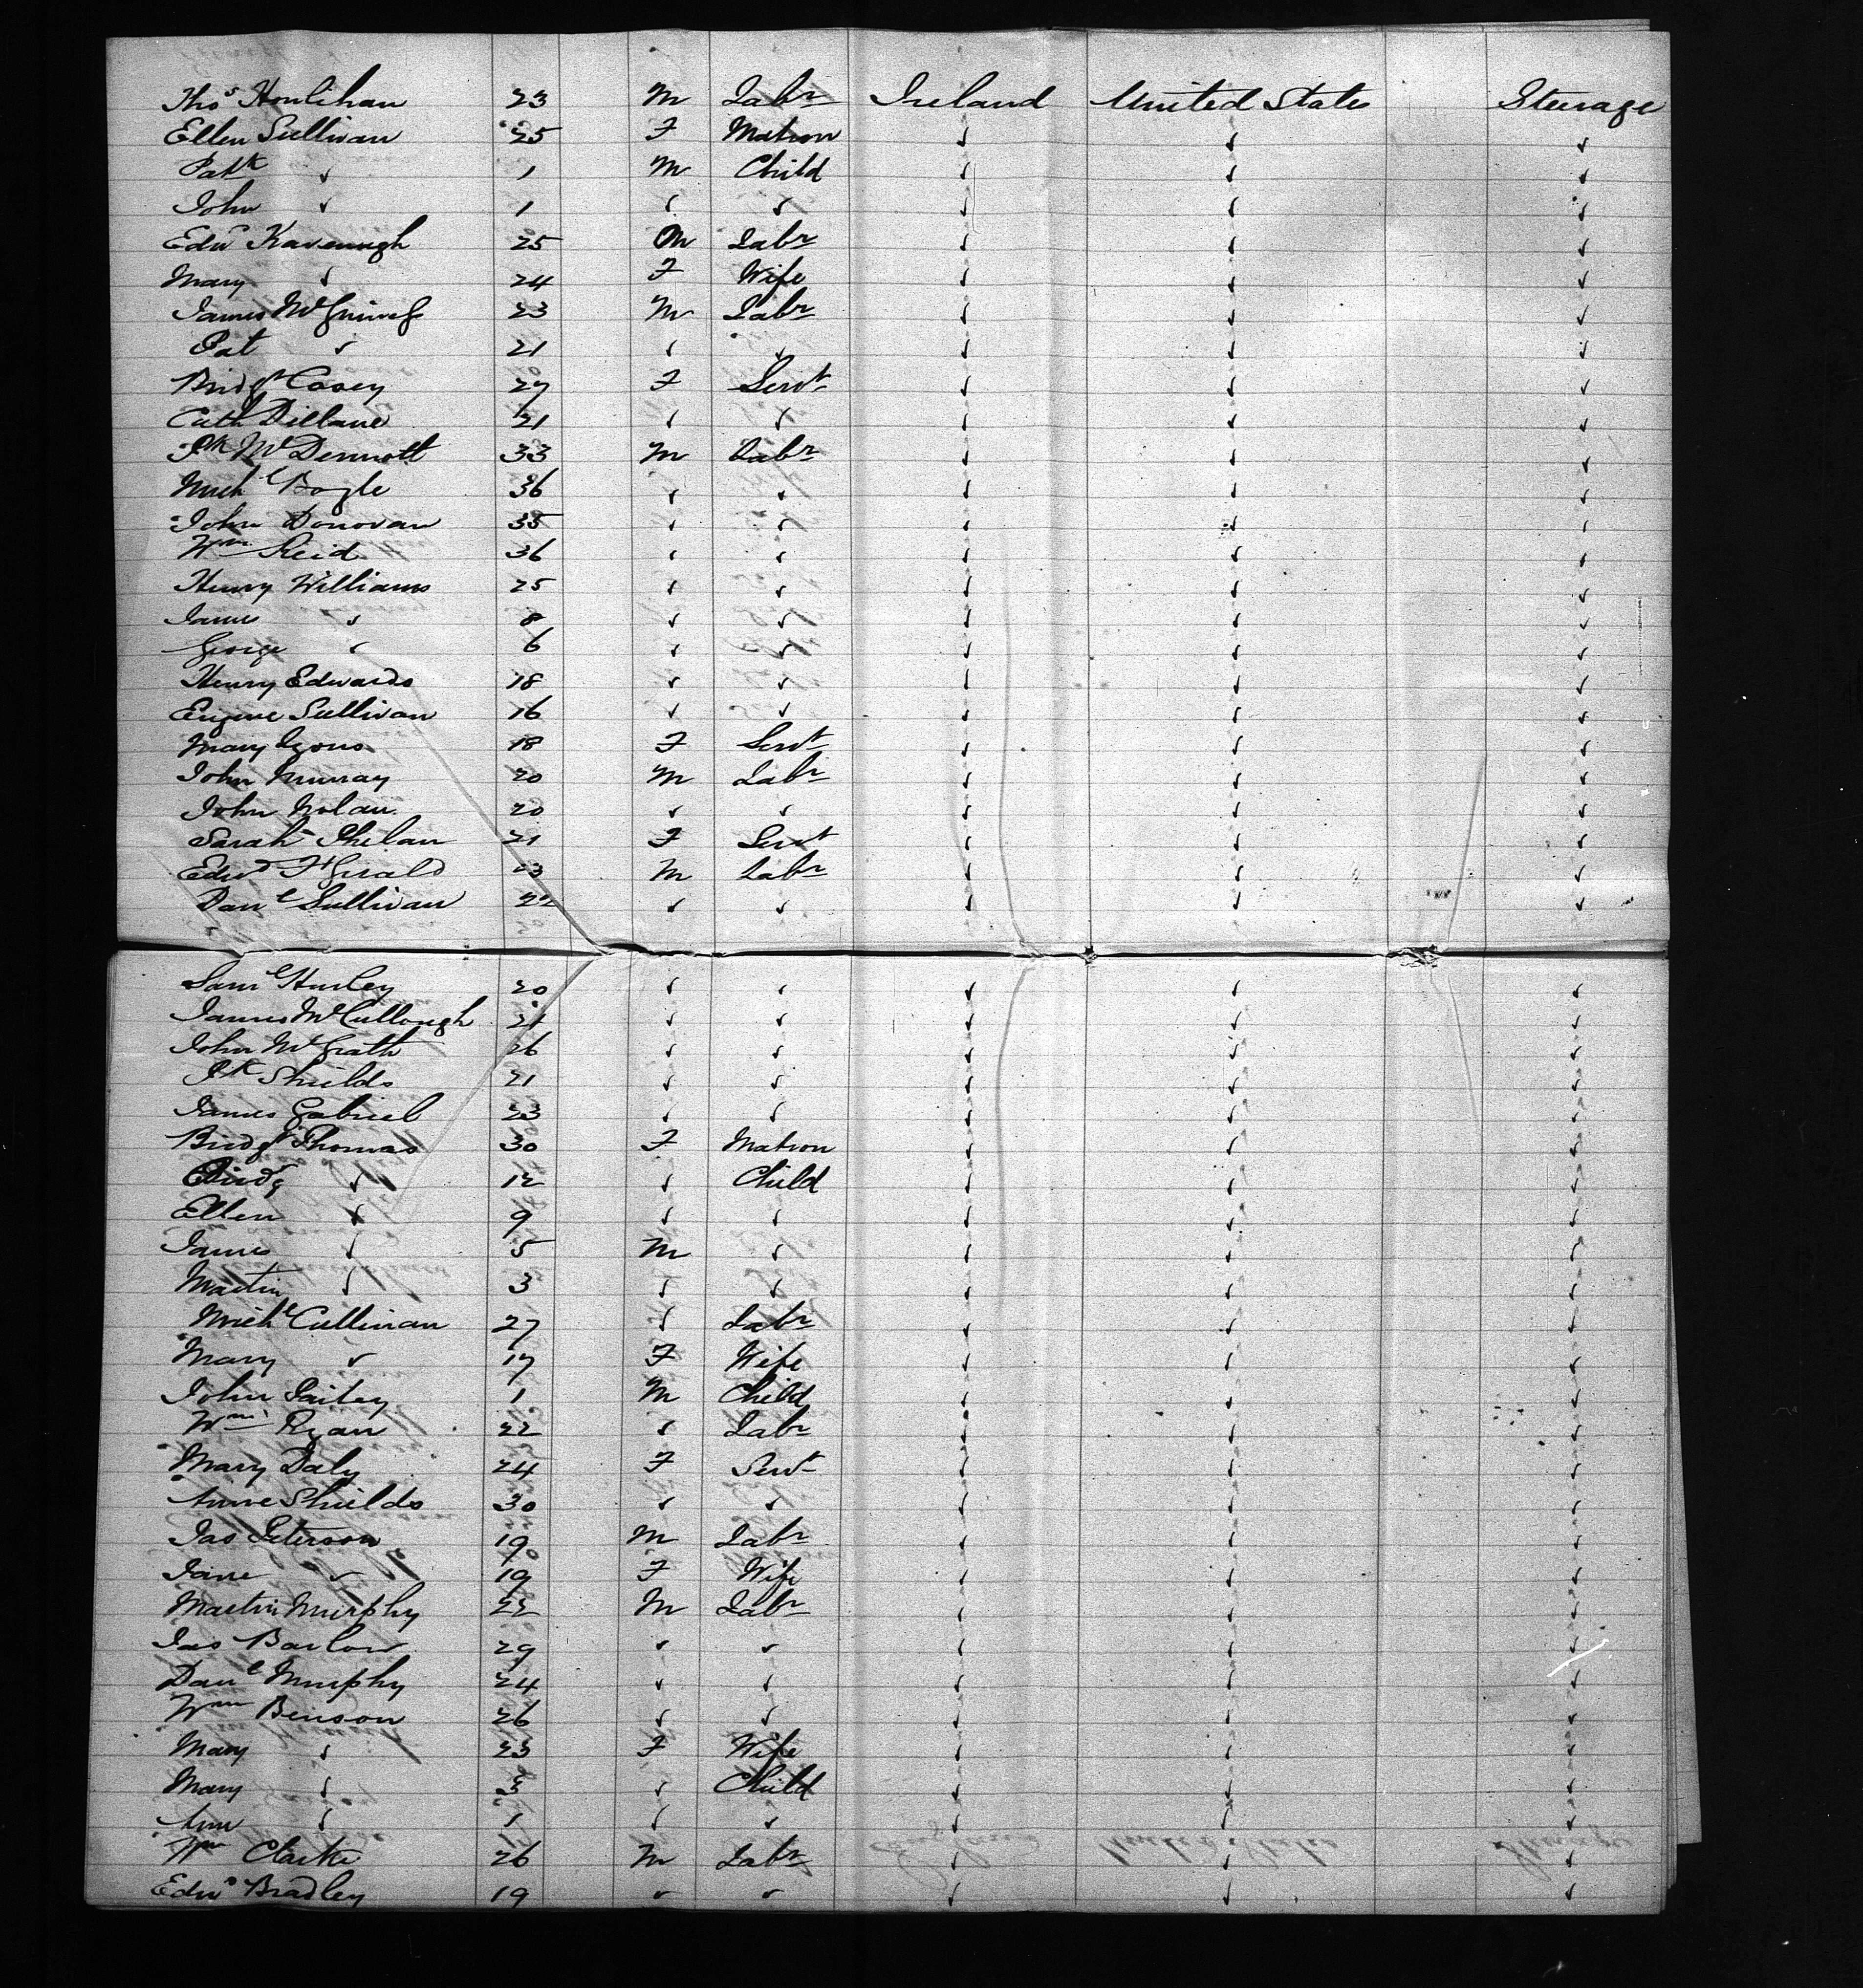 Thos Honlihan 23 M Labr Ireland United States Steerage
Ellen Sullivan 25 F Matron ✓ ✓ ✓
Patk ✓ 1 M Child ✓ ✓ ✓
John ✓ 1 ✓ ✓ ✓ ✓ ✓
Edwd Kavenugh 25 M Labr ✓ ✓ ✓
Mary ✓ 24 F Wife ✓ ✓ ✓
James 23 M Labr ✓ ✓ ✓
Pat ✓ 21 ✓ ✓ ✓ ✓ ✓
Bridgt Casey 27 F Servt ✓ ✓ ✓
Cath Dillane 21 ✓ ✓ ✓ ✓ ✓
Pk McDermott 33 M Labr ✓ ✓ ✓
Michl Bogle 36 ✓ ✓ ✓ ✓ ✓
John Donovan 35 ✓ ✓ ✓ ✓ ✓
Wm Reid 36 ✓ ✓ ✓ ✓ ✓
Henry Williams 25 ✓ ✓ ✓ ✓ ✓
James ✓ 8 ✓ ✓ ✓ ✓ ✓
George ✓ 6 ✓ ✓ ✓ ✓ ✓
Henry Edwards 18 ✓ ✓ ✓ ✓ ✓
Eugene Sullivan 16 ✓ ✓ ✓ ✓ ✓
Mary Lyons 18 F Servt ✓ ✓ ✓
John Murray 20 M Labr ✓ ✓ ✓
John Nolan 20 ✓ ✓ ✓ ✓ ✓
Sarah Phelan 21 F Servt ✓ ✓ ✓
Edwd FtGerald 23 M Labr ✓ ✓ ✓
Danl Sullivan 22 ✓ ✓ ✓ ✓ ✓
Saml Hurley 20 ✓ ✓ ✓ ✓ ✓
James McCullough 21 ✓ ✓ ✓ ✓ ✓
John McGrath 26 ✓ ✓ ✓ ✓ ✓
Pk Shields 21 ✓ ✓ ✓ ✓ ✓
James Gabriel 23 ✓ ✓ ✓ ✓ ✓
Bridgt Thomas 30 F Matron ✓ ✓ ✓
Bridg ✓ 12 ✓ Child ✓ ✓ ✓
Ellen ✓ 9 ✓ ✓ ✓ ✓ ✓
James ✓ 5 M ✓ ✓ ✓ ✓
Martin ✓ 3 ✓ ✓ ✓ ✓ ✓
Michl Cullinan 27 ✓ Labr ✓ ✓ ✓
Mary ✓ 17 F Wife ✓ ✓ ✓
John 1 M Child ✓ ✓ ✓
Wm Ryan 22 ✓ Labr ✓ ✓ ✓
Mary Daly 24 F Servt ✓ ✓ ✓
Anne Shields 30 ✓ ✓ ✓ ✓ ✓
Jas Peterson 19 M Labr ✓ ✓ ✓
Jane ✓ 19 F Wife ✓ ✓ ✓
Martin Murphy 22 M Labr ✓ ✓ ✓
Jas Barlow 29 ✓ ✓ ✓ ✓ ✓
Danl Murphy 24 ✓ ✓ ✓ ✓ ✓
Wm Benson 26 ✓ ✓ ✓ ✓ ✓
Mary ✓ 23 F Wife ✓ ✓ ✓
Mary ✓ 3 ✓ Child ✓ ✓ ✓
Ann ✓ 1 ✓ ✓ ✓ ✓ ✓
Wm Clarke 26 M Labr ✓ ✓ ✓
Edwd Bradley 19 ✓ ✓ ✓ ✓ ✓